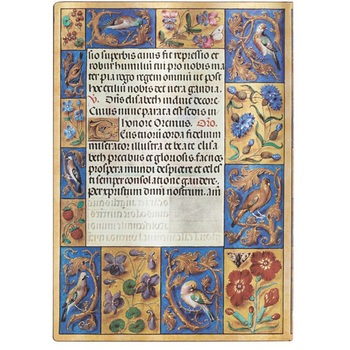 sio superbis anius fit repressio et
robur humiliū tui pro nobis ma
ter pia rogo regem omniū ut post
hoc exiliū nobis det uera gaudia.
V. Dn̄s elisabeth induit decore
Cuius nunc parata est sedis in
honore Oremus. Oro.
corda fidelium
miserator illustra et beate elisa
beth precibus et gloriosis fac nos
prospera mundi despicere et celesti
semper consolatione gaudere.
Per xp̄istum dn̄m nostrum. am